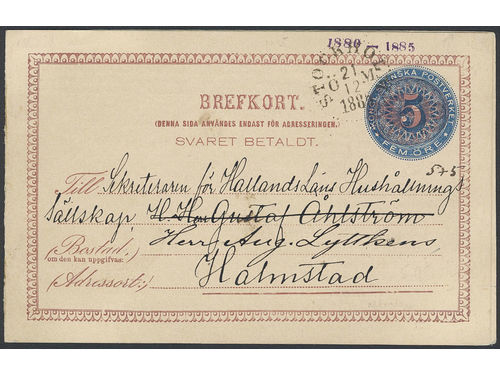 1880 — 1885
SÖDERHO
21
12
188
BREFKORT.
(DENNA SIDA ANVÄNDES ENDAST FÖR ADRESSERINGEN.)
SVARET BETALDT.
KONGL. SVENSKA POSTVERKET
5
FEM ÖRE
575
Till Sekreteraren för Hallands Läns Hushållnings
Sällskap, H. Herr Gustaf Ahlström
(Bostad) Herr Aug. Lyttkens
om den kan uppgifvas:
(Adressort:) Halmstad